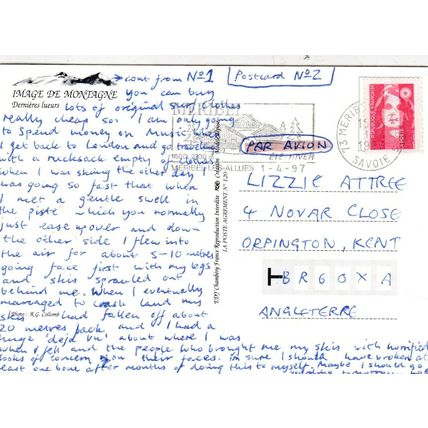 IMAGE DE MONTAGNE
Dernières lueurs
→ cont from Nº1
Postcard Nº2
you can buy
lots of original surf clothes
really cheap so I am only going
to spend money on Music when
I get back to London and go traveling
with a rucksack empty of clothes.
When I was skiing the other day I
was going so fast that when
I met a gentle swell in
the piste which you normally
just ease up over and down
the other side I flew into
the air for about 5-10 metres
going face first with my legs
and skis sprawled out
behind me. When I eventually
managed to crash land my
skis had fallen off about
20 metres back and I had a
huge 'deja vu' about where I was
when I fell and the people who brought me my skis with horrified
looks of concern on their faces. I'm sure I should have broken at
least one bone after months of doing this to myself. Maybe I should go
Photo : R.G. Collomb
EDY Chambéry France Reproduction Interdite
LA POSTE AGREMENT Nº
MERIBEL
ETE HIVER
MERIBEL LES ALLUES 1-4-97
PAR AVION
73 MERIBEL
SAVOIE
LIZZIE ATTREE
4 NOVAR CLOSE
ORPINGTON, KENT
BR60XA
ANGLETERRE